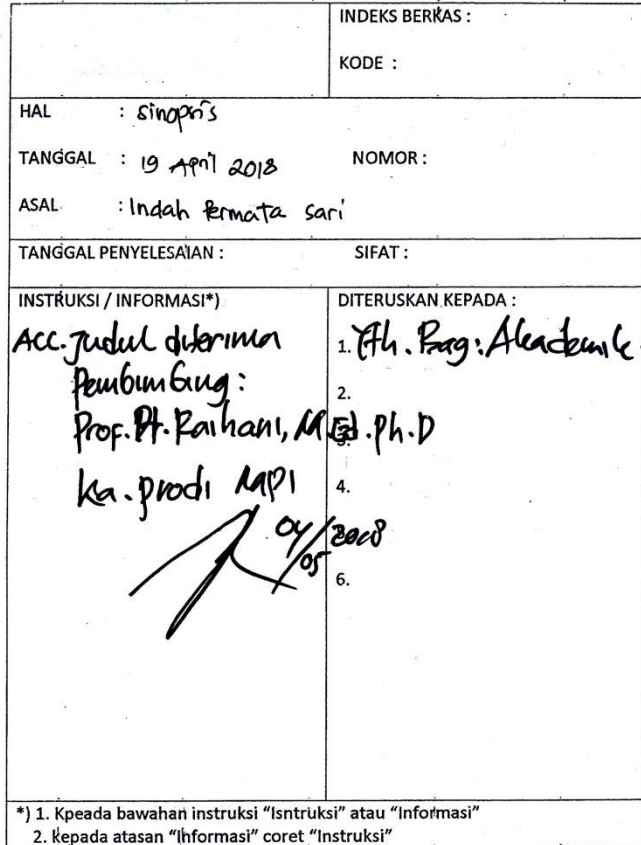 INDEKS BERKAS :
KODE :
HAL : Sinopsis
TANGGAL : 19 April 2018 NOMOR :
ASAL : Indah Permata Sari
TANGGAL PENYELESAIAN : SIFAT :
INSTRUKSI / INFORMASI*)
Acc. Judul diterima
Pembimbing :
Prof. Dr. Raihani, M.Ed. Ph.D
Ka. prodi MPI
04/05 2018
DITERUSKAN KEPADA :
1. Yth. Bag : Akademik
2.
4.
6.
*) 1. Kpeada bawahan instruksi "Isntruksi" atau "Informasi"
2. kepada atasan "Informasi" coret "Instruksi"